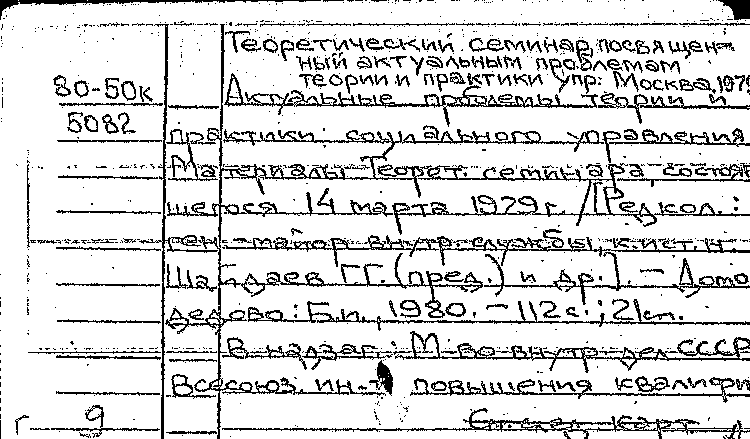 Теоретический семинар, посвящен-
ный актуальным проблемам
теории и практики упр. Москва, 1979
80-50к
Актуальные проблемы теории и
5082
практики социального управления
Материалы Теорет. семинара, состояв
шегося 14 марта 1979 г. / [Редкол.:
ген.-майор внутр. службы, к.ист.н.
Г.Г. (пред.) и др.]. - Домо
дедово: Б.и., 1980. - 112 с.; 21 см.
В надзаг.: М-во внутр. дел СССР
Всесоюз. ин-т повышения квалифи
г 9
См. след. карт.